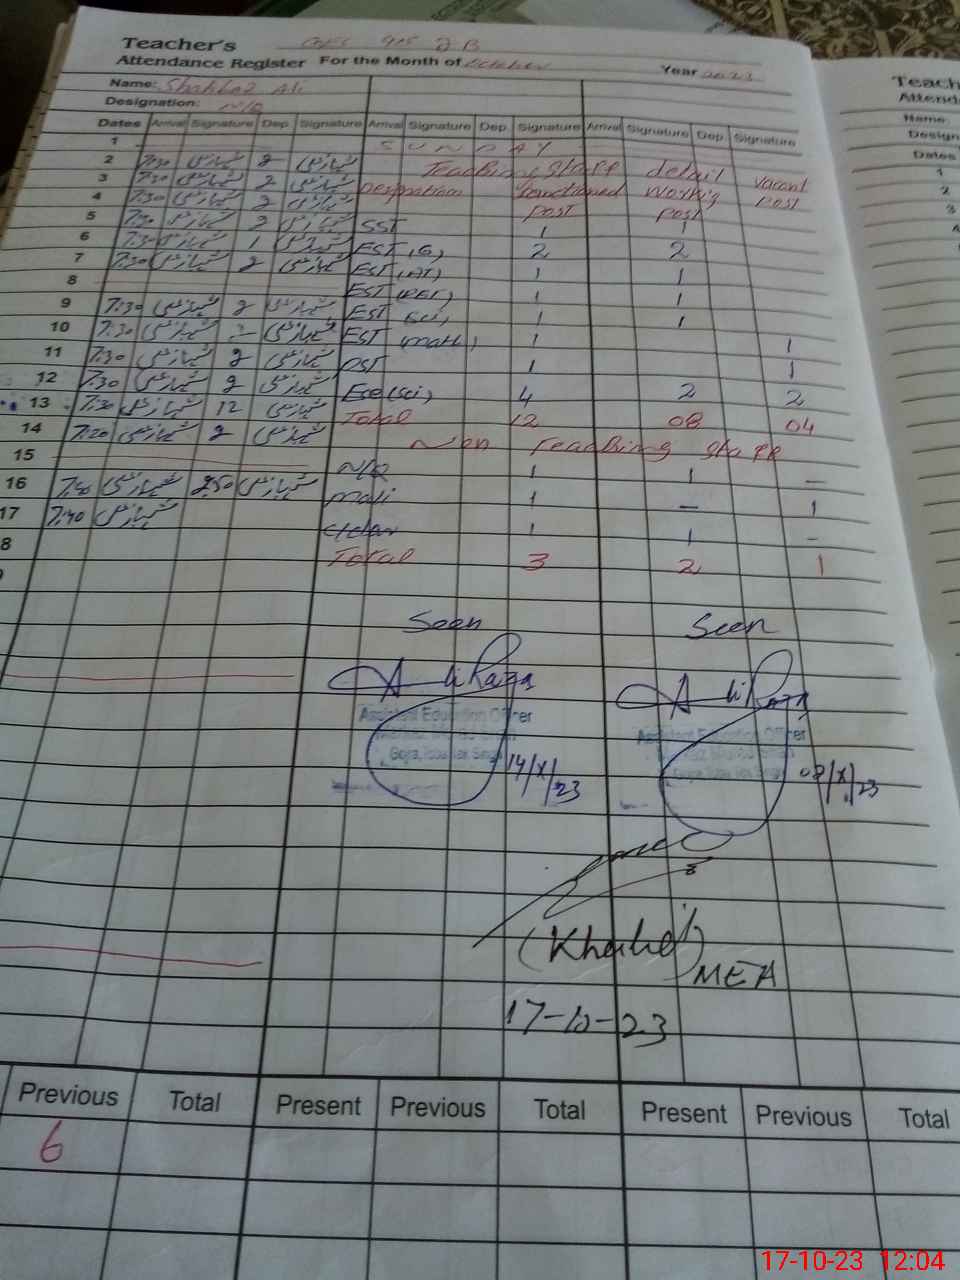 Teacher's
Attendance Register For the Month of October Year 2023
Name: Shahbaz Ali
Designation: N/Q
Dates Arrival Signature Dep. Signature Arrival Signature Dep. Signature Arrival Signature Dep. Signature
1 SUNDAY
2 7:30 شہباز علی 2 شہباز علی Teaching Staff detail
3 7:30 شہباز علی 2 شہباز علی Designation Sanctioned Working Vacant
4 7:30 شہباز علی 2 شہباز علی post post post
5 7:30 شہباز علی 2 شہباز علی SST 1 1
6 7:30 شہباز علی 1 شہباز علی EST (G) 2 2
7 7:30 شہباز علی 2 شہباز علی EST (AT) 1 1
8 EST (PET) 1 1
9 7:30 شہباز علی 2 شہباز علی EST Sci) 1 1
10 7:30 شہباز علی شہباز علی EST math) 1 1
11 7:30 شہباز علی 2 شہباز علی PST 1 1
12 7:30 شہباز علی 2 شہباز علی Ese (sci) 4 2 2
13 7:30 شہباز علی 12 شہباز علی Total 12 08 04
14 7:20 شہباز علی 2 شہباز علی Non Teaching Staff
15 N/Q 1 1 –
16 شہباز علی 2:50 شہباز علی mali 1 – 1
17 7:40 شہباز علی 1 1 –
8 Total 3 2 1
Seen Seen
Ali Raza Ali Raza
Assistant Education Officer Assistant Education Officer
14/X/23 08/X/23
(Khalid)
MEA
17-10-23
Previous Total Present Previous Total Present Previous Total
6
Teach
Attend
Name:
Design
Dates
1
2
3
17-10-23 12:04